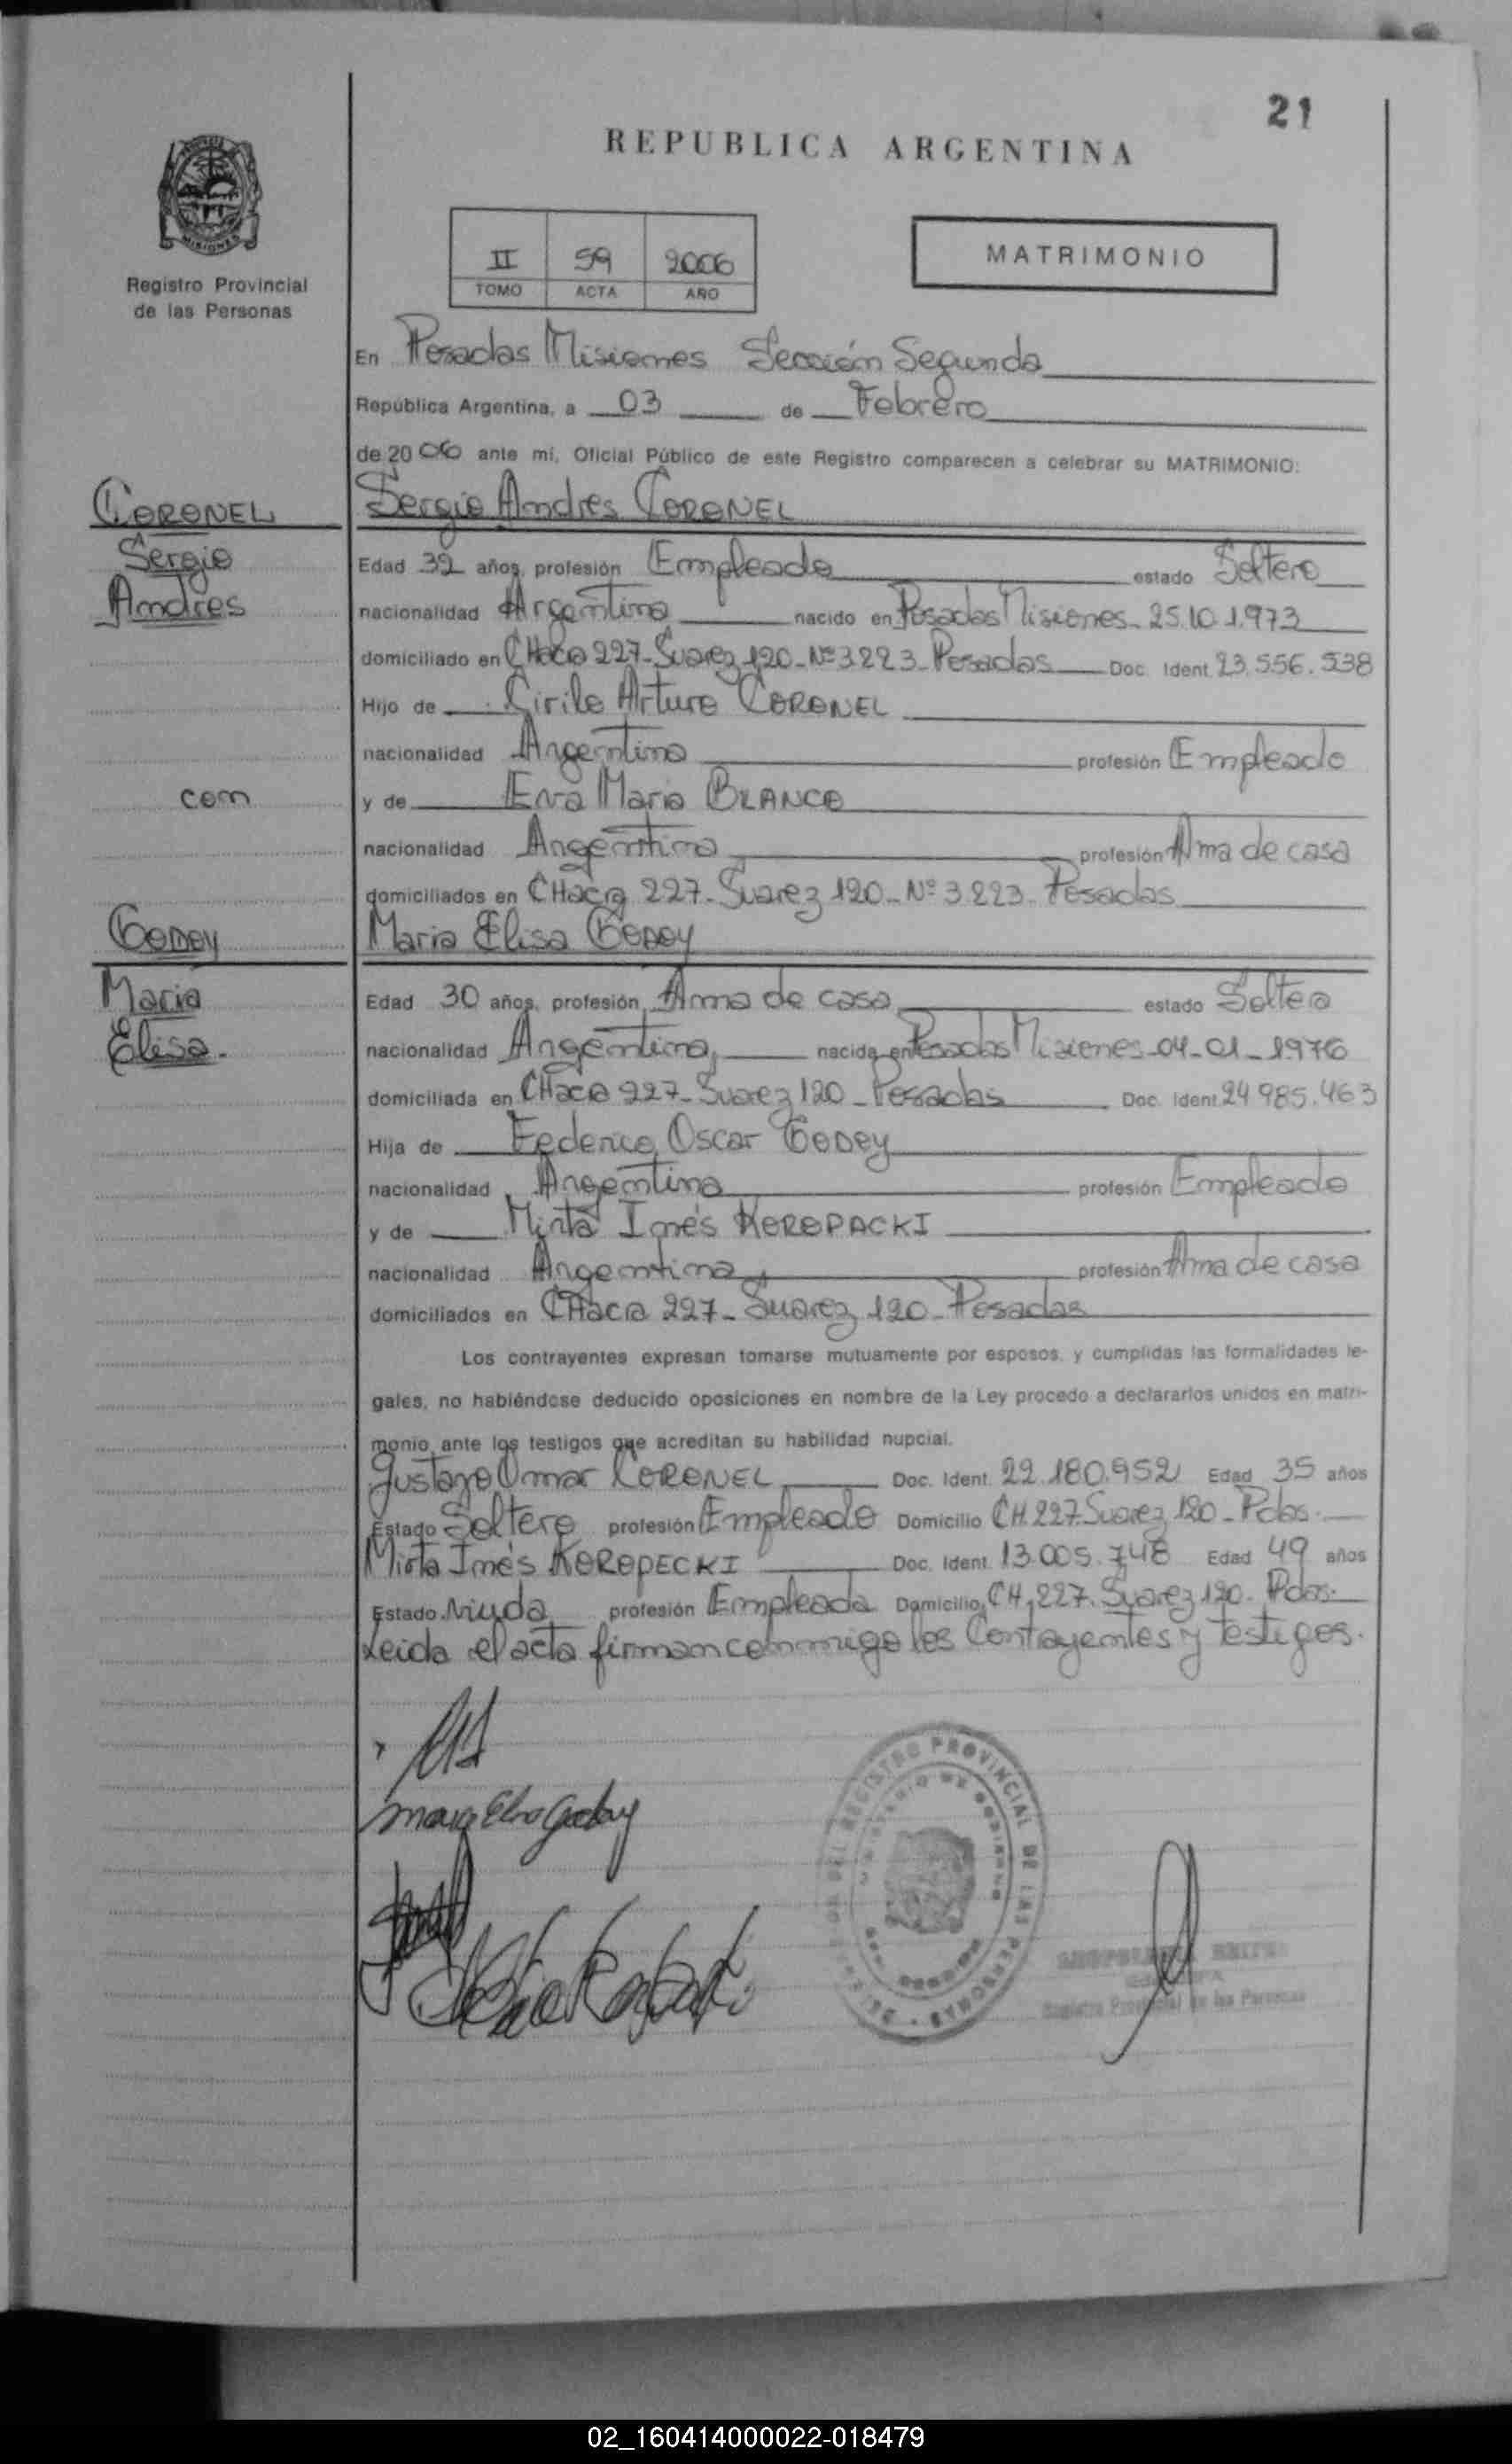 21
REPUBLICA ARGENTINA
MISIONES
Registro Provincial
de las Personas
II 59 2006
TOMO ACTA AÑO
MATRIMONIO
En Posadas Misiones Sección Segunda
República Argentina, a 03 de Febrero
de 2006 ante mí, Oficial Público de este Registro comparecen a celebrar su MATRIMONIO:
CORONEL Sergio Andrés CORONEL
Sergio Edad 32 años, profesión Empleado estado Soltero
Andres nacionalidad Argentina nacido en Posadas Misiones - 25.10.1.973
domiciliado en CHacra 227-Suarez 120-Nº 3223-Posadas Doc. Ident. 23.556.538
Hijo de Cirilo Arturo CORONEL
nacionalidad Argentina profesión Empleado
con y de Eva Maria BLANCO
nacionalidad Argentina profesión Ama de casa
domiciliados en CHacra 227-Suarez 120-Nº 3223-Posadas
GODOY Maria Elisa GODOY
Maria Edad 30 años, profesión Ama de casa estado Soltera
Elisa.- nacionalidad Argentina nacida en Posadas Misiones-04-01-1976
domiciliada en CHacra 227-Suarez 120-Posadas Doc. Ident. 24 985.463
Hija de Federico Oscar GODOY
nacionalidad Argentina profesión Empleado
y de Mirta Inés KOROPACKI
nacionalidad Argentina profesión Ama de casa
domiciliados en CHacra 227-Suarez 120-Posadas
Los contrayentes expresan tomarse mutuamente por esposos, y cumplidas las formalidades le-
gales, no habiéndose deducido oposiciones en nombre de la Ley procedo a declararlos unidos en matri-
monio ante los testigos que acreditan su habilidad nupcial.
Gustavo Omar CORONEL Doc. Ident. 22.180.952 Edad 35 años
Estado Soltero profesión Empleado Domicilio CH.227.Suarez 120-Pdas.
Mirta Inés KOROPECKI Doc. Ident. 13.005.748 Edad 49 años
Estado Viuda profesión Empleada Domicilio CH.227.Suarez 120. Pdas.
Leida el acta firman conmigo los Contrayentes y testigos.
Maria Elisa Godoy
REGISTRO PROVINCIAL DE LAS PERSONAS
Registro Provincial de las Personas
02_160414000022-018479